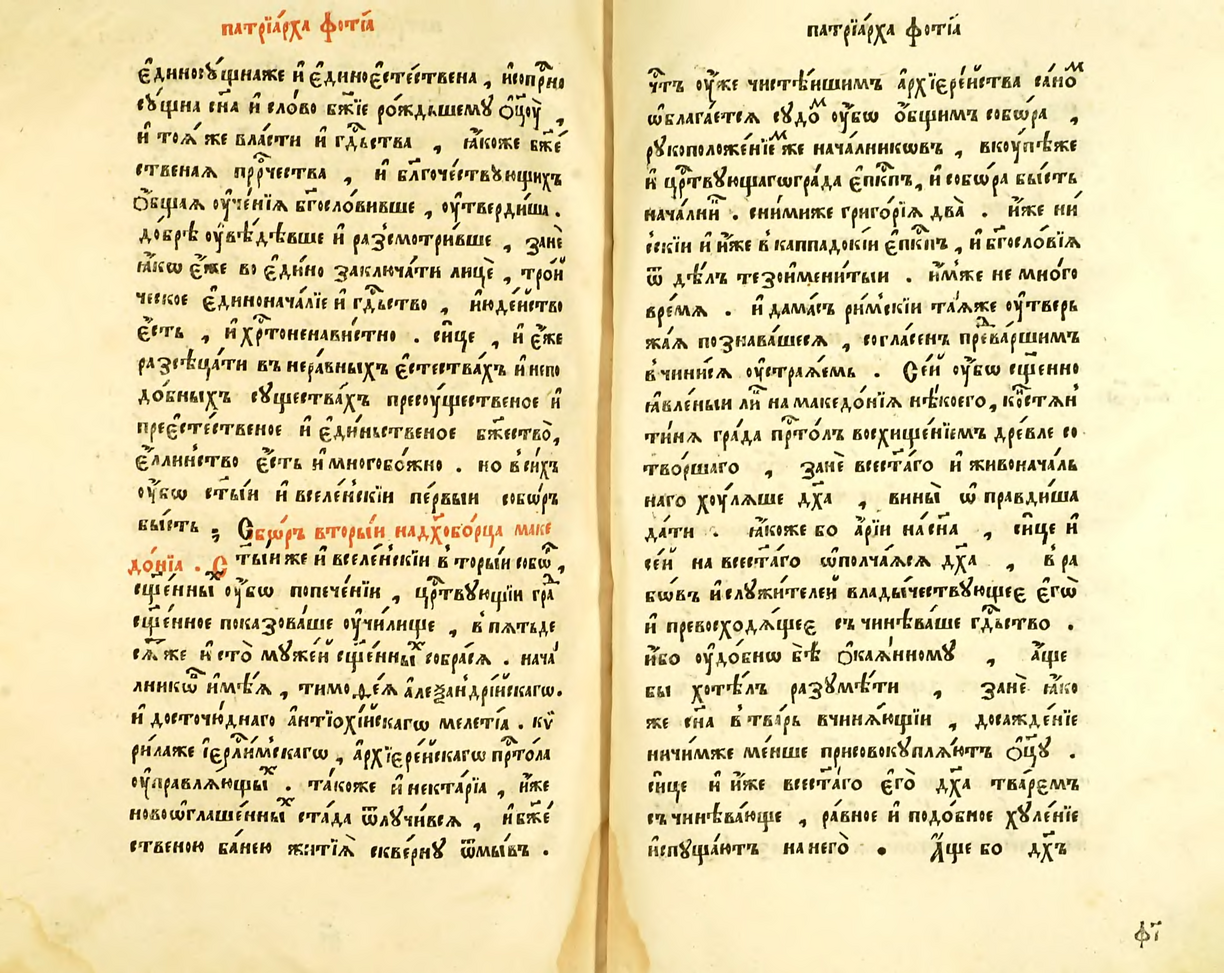 патрїа́рха фѡті́а
є҆диносꙋ́щнаже и҆ є҆диноє҆сте́ствена , и҆сопрⷭ҇но
сꙋ́щна сн҃а и҆ сло́во бж҃їе ро́ждьшемꙋ ѻ҆ц҃ꙋ ,
и҆ тоѧ́ же вла́сти и҆ гдⷭ҇ьства , ꙗ҆́коже бж҃е
ственаѧ прⷪ҇ро́чества , и҆ бл҃гоче́ствꙋющихъ
ѻ҆́бщаѧ ᲂу҆че́нїѧ бг҃осло́вивше , ᲂу҆тверди́ша .
до́брѣ ᲂу҆вѣ́дѣвше и҆ разсмотри́вше , занѐ
ꙗ҆́кѡ є҆́же во є҆ди́но заключа́ти лицѐ , тро́и
ческое є҆диноначалїе и҆ гдⷭ҇ьство , и҆юде́йство
є҆́сть , и҆ хрⷭ҇тоненави́стно . си́це , и҆ є҆́же
разсѣца́ти въ нера́вныхъ є҆стества́хъ и҆ непо
до́бныхъ сꙋщества́хъ пресꙋ́щественое и҆
преє҆сте́ственое и҆ є҆ди́ньственое бж҃ество̀,
є҆́ллинство є҆́сть и҆ многобо́жно . но в си́хъ
ᲂу҆́бѡ ст҃ы́и и҆ вселе́нскїи пе́рвыи собѡ́ръ
бы́сть ; Сбѡ́ръ вторы́и на дх҃обо́рца маке
до́нїа . Ст҃ы́и же и҆ вселе́нскїи вторы́и собѡ́ ,
сщ҃е́нныⷯ ᲂу҆́бѡ попече́нїи , црⷭ҇твꙋющїи граⷣ
сщ҃е́нное показова́ше ᲂу҆чи́лище , в пѧтьде
сѧ́ⷮ же и҆ сто̀ мꙋже́й сщ҃е́нныⷯ собра́сѧ . нача́
лникѡⷡ и҆мѣ́ѧ , тимоѳе́ѧ а҆леѯандрі́искагѡ.
и҆ досточю́днаго а҆нтїохі́искагѡ меле́тїа . кѷ
ри́лаже і҆ерⷭ҇ли́мскагѡ , а҆рхїере́йскагѡ прⷭ҇то́ла
ᲂу҆правлѧ́ющыⷯ . та́коже и҆ некта́рїа , и҆́же
новоѡ҆глаше́нныⷯ ста́да ѿлꙋчи́всѧ , и҆ бж҃е́
ственою ба́нею житїѧ̀ скве́рнꙋ ѿмы́въ .
патрїа́рха фѡті́а
чⷭ҇тъ ᲂу҆́же чистѣ́ишимъ а҆рхїере́йства са́ноⷨ
ѡ҆блага́етсѧ сꙋдо́ⷨ ᲂу҆́бѡ ѻ҆́бщимъ собѡ́ра ,
рꙋкоположе́нїеⷨ же нача́лникѡвъ , вкꙋ́пѣже
и҆ црⷭ҇твꙋющагѡгра́да є҆пⷭ҇кпъ, и҆ собѡ́ра бы́сть
нача́лниⷦ . с ни́миже григо́рїѧ два̀ . и҆́же ни́
сскїи и҆ и҆́же в каппадокі́и є҆пⷭ҇кпъ , и҆ бг҃осло́вїѧ
ѿ дѣ́лъ тезоимени́тыи . и҆́мже не мно́го
вре́мѧ . и҆ дама́съ ри́мскїи та́ѧже ᲂу҆тверь
жа́ѧ познава́шесѧ , согла́сенъ предва́ршимъ
в чини́сѧ ᲂу҆страѧ́емь . Се́й ᲂу҆́бѡ сщ҃е́нно
ꙗ҆вле́ныи лиⷦ на македо́нїѧ нѣ́коего, кѡⷭ҇тѧн
ти́нѧ гра́да прⷭ҇то́лъ восхище́нїемъ дре́вле со
тво́ршаго , занѐ всест҃а́го и҆ живонача́ль
наго хꙋ́лѧше дх҃а , вины̀ ѡ҆правди́ша
да́ти . ꙗ҆́коже бо а҆́рїи на сн҃а , си́це и҆
се́й на всест҃а́го ѡ҆полча́ѧсѧ дх҃а , в ра
бѡ́въ и҆ слꙋжи́телей влады́чествꙋющеє є҆гѡ̀
и҆ превосходѧ́щеє съчинѣ́ваше гдⷭ҇ьство .
и҆́бо ᲂу҆до́бнѡ бѣ̀ ѻ҆каѧ́нномꙋ , а҆́ще
бы хотѣ́лъ разꙋмѣ́ти , занѐ ꙗ҆́ко
же сн҃а в тва́рь вчинѧ́ющїи , досажде́нїе
ничи́мже ме́нше присовокꙋплѧ́ютъ ѻ҆ц҃ꙋ .
си́це и҆ и҆́же всест҃а́го є҆го̀ дх҃а тва́ремъ
съчинѣва́юще , ра́вное и҆ подо́бное хꙋле́нїе
и҆спꙋща́ютъ на него̀ . А҆́ще бо дх҃ъ
ф҃і